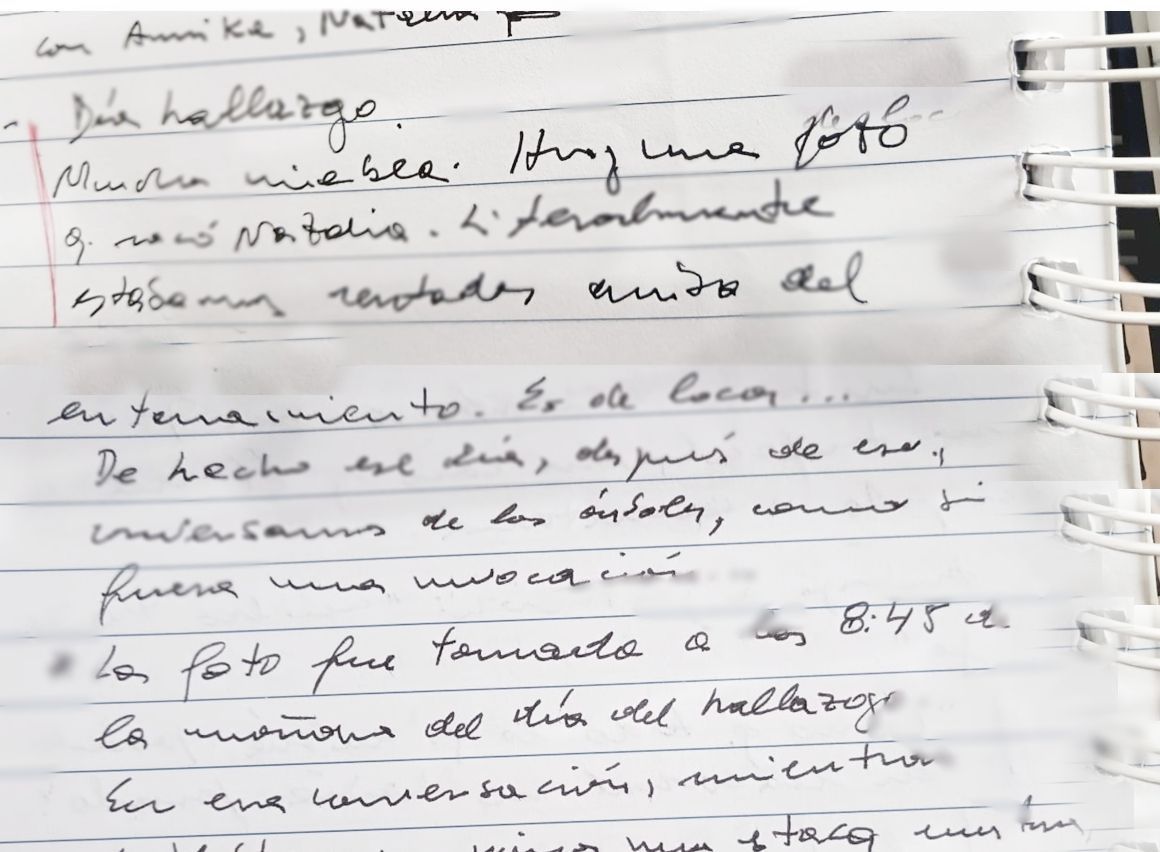 con Annike, Natalia
- Día hallazgo.
Mucha niebla. Hay una foto
q. sacó Natalia. Literalmente
estábamos sentados encima del
enterramiento. Es de locos...
De hecho ese día, después de eso,
conversamos de los árboles, como si
fuera una invocación...
La foto fue tomada a las 8:45 d.
la mañana del día del hallazgo
En esa conversación, mientras
una estaca